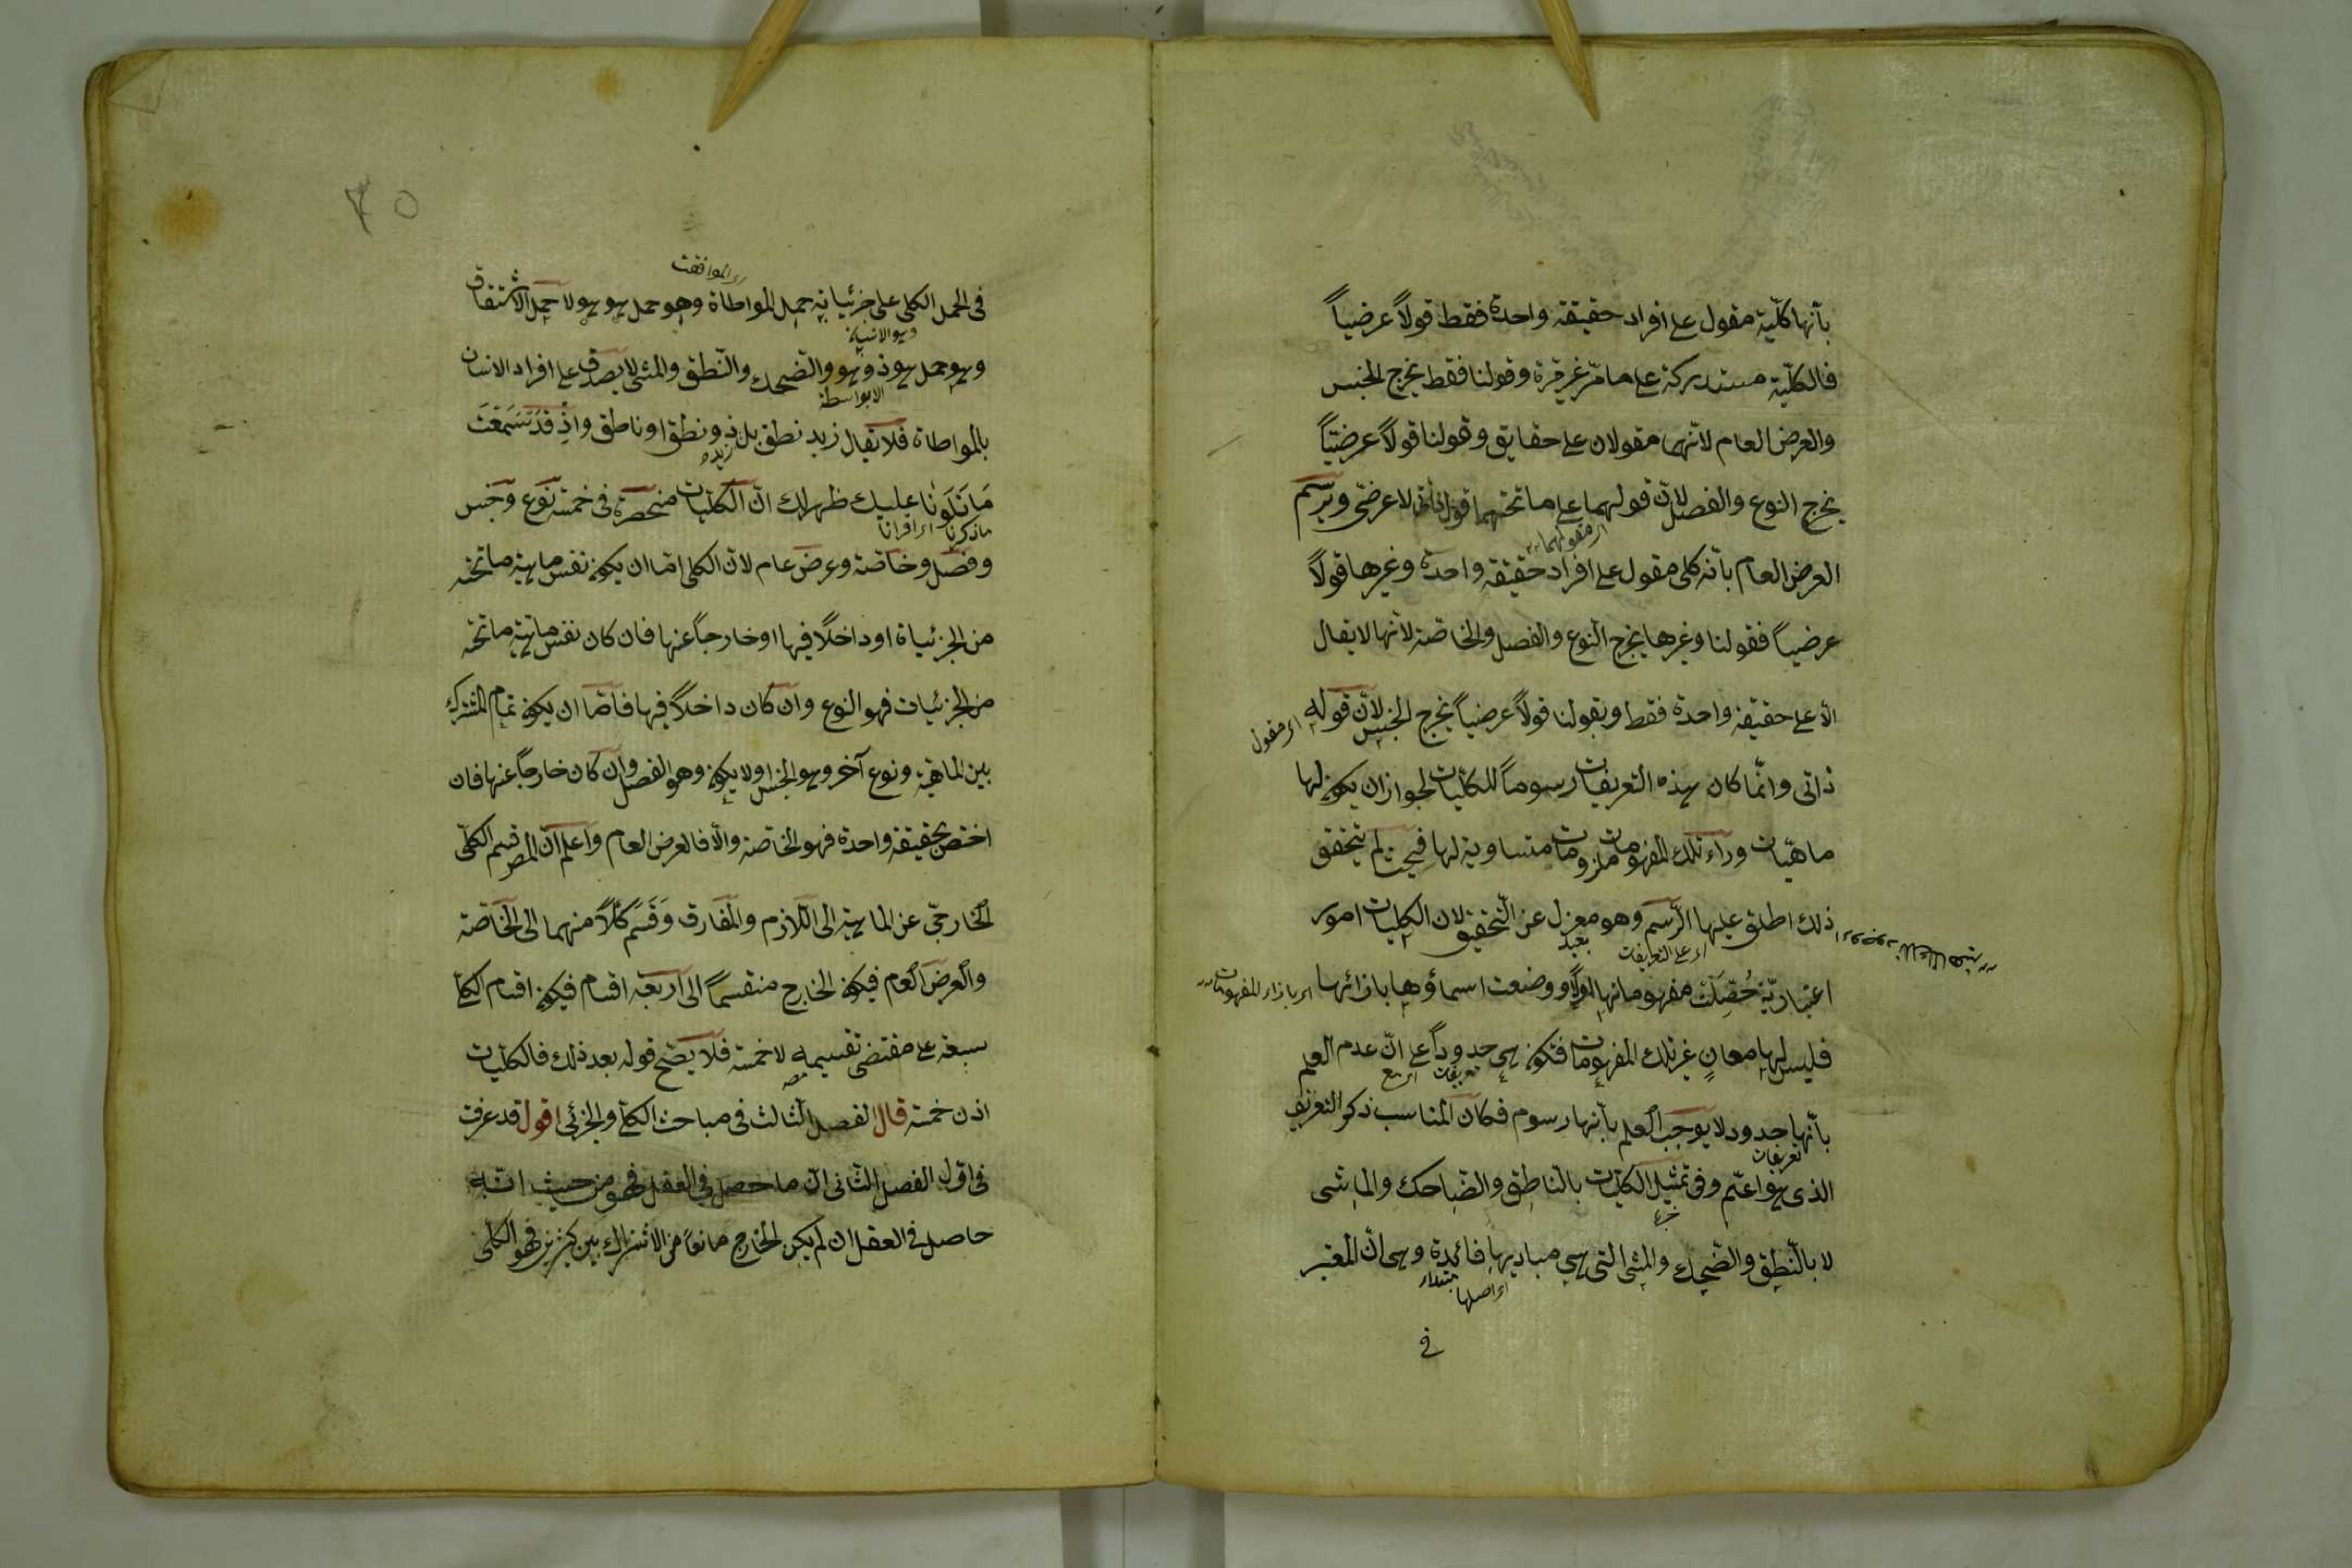 بأنها كلّية مقول على افراد حقيقة واحدة فقط قولاً عرضياً
فالكلّية مستدركة على ما مرّ غير مرّة وقولنا فقط يخرج الجنس
والعرض العام لانّهما مقولان على حقايق وقولنا قولاً عرضيّاً
يخرج النوع والفصل لانّ قولهما على ما تحتهما قول ذاتى لا عرضى ويرسم
اى مقولهما
العرض العام بأنه كلى مقول على افراد حقيقة واحدة وغيرها قولاً
عرضياً فقولنا وغيرها يخرج النوع والفصل والخاصّة لانّها لا يقال
الّا على حقيقة واحدة فقط وبقولنا قولاً عرضياً يخرج الجنس لانّ قوله
اى مقول
ذاتى وانّما كان هذه التعريفات رسوماً للكلّيات لجواز ان يكون لها
ماهيّات ورآء تلك المفهومات ملزومات متساوية لها فحيث لم يتحقق
ذلك اطلق عليها الرّسم وهو معزل عن التّحقيق لان الكليات امور
بعيد
اى على التعريفات
اعتباريّة حُصِلَت مفهوماتها اوّلاً ووضعت اسماؤها بازائها
اى بازاء المفهومات
فليس لها معانٍ غير تلك المفهومات فتكون هى حدوداً على انّ عدم العلم
تعريفات
بأنّها حدود لا يوجب العلم بأنها رسوم فكان المناسب ذكر التعريف
تعريفات
الذى هو اعمّ وفى تمثيل الكلّيات بالنّاطق والضّاحك والماشى
لا بالنّطق والضّحك والمشى التى هى مباديها فائدة وهى انّ المعتبر
اى اصلها
مبتداء
فى
فى الحمل الكلى على جزئياته حمل المواطاة وهو حمل هو هو لا حمل الاشتقاق
اى الموافقت
وهو حمل هو ذو هو والضّحك والنّطق والمشى لا يصدق على افراد الانسان
بالمواطاة فلا يقال زيد نطق بل ذو نطق او ناطق واذِ قَد سَمعْتَ
زيد
مَا تَلَوْنا عليك ظهر لك انّ الكليّات منحصرة فى خمسة نوع وجنس
ما ذكرنا
وفصل وخاصّة وعرض عام لانّ الكلى امّا ان يكون نفس ماهية ما تحته
من الجزئياة او داخلاً فيها او خارجاً عنها فان كان نفس ماهية ما تحته
من الجزئيات فهو النوع وان كان داخلاً فيها فامّا ان يكون تمام المشترك
بين الماهيّة ونوع آخر وهو الجنس او لا يكون وهو الفصل وان كان خارجاً عنها فان
اختصّ بحقيقة واحدة فهو الخاصّة والّا فالعرض العام واعلم انّ المص قسم الكلّى
الخارجىّ عن الماهية الى اللّازم والمفارق وَقَسَم كُلّاً منهما الى الخاصّة
والعرض العام فيكون الخارج منقسماً الى اربعة اقسام فيكون اقسام الكلّى
سبعة على مقتضى تقسيمه لا خمسة فلا يصّح قوله بعد ذلك فالكلّيات
اذن خمسة قال الفصل الثالث فى مباحث الكلّى والجزئى اقول قد عرفت
فى اوّل الفصل الثّانى انّ ما حصل فى العقل فهو من حيث انّه
حاصل فى العقل ان لم يكن الخارج مانعاً من الاشتراك بين كثيرين فهو الكلى